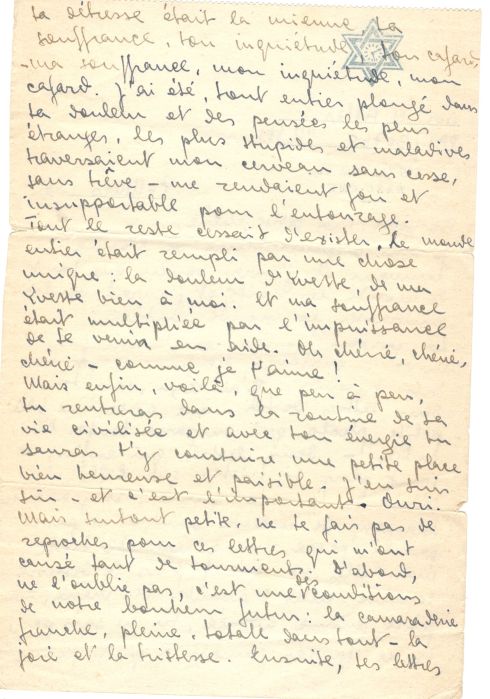 ta détresse était la mienne ta
souffrance, ton inquiétude, ton cafard,
- ma souffrance, mon inquiétude, mon
cafard. J'ai été, tout entier plongé dans
ta douleur et des pensées les plus
étranges, les plus stupides et maladives
traversaient mon cerveau sans cesse,
sans trêve - me rendaient fou et
insupportable pour l'entourage.
Tout le reste cessait d'exister. Le monde
entier était rempli par une chose
unique : la douleur d'Yvette, de ma
Yvette bien à moi. Et ma souffrance
était multipliée par l'impuissance
de te venir en aide. Oh chérie, chérie,
chérie - comme je t'aime !
Mais enfin, voilà, que peu à peu,
tu rentreras dans la routine de ta
vie civilisée et avec ton énergie tu
sauras t'y construire une petite place
bien heureuse et paisible. J'en suis
sûr - et c'est l'important.
Mais surtout petite, ne te fais pas de
reproches pour ces lettres qui m'ont
causé tant de tourments ! D'abord,
ne l'oublie pas, c'est une des conditions
de notre bonheur futur : la camaraderie
franche, pleine, totale dans tout - la
joie et la tristesse. Ensuite, tes lettres